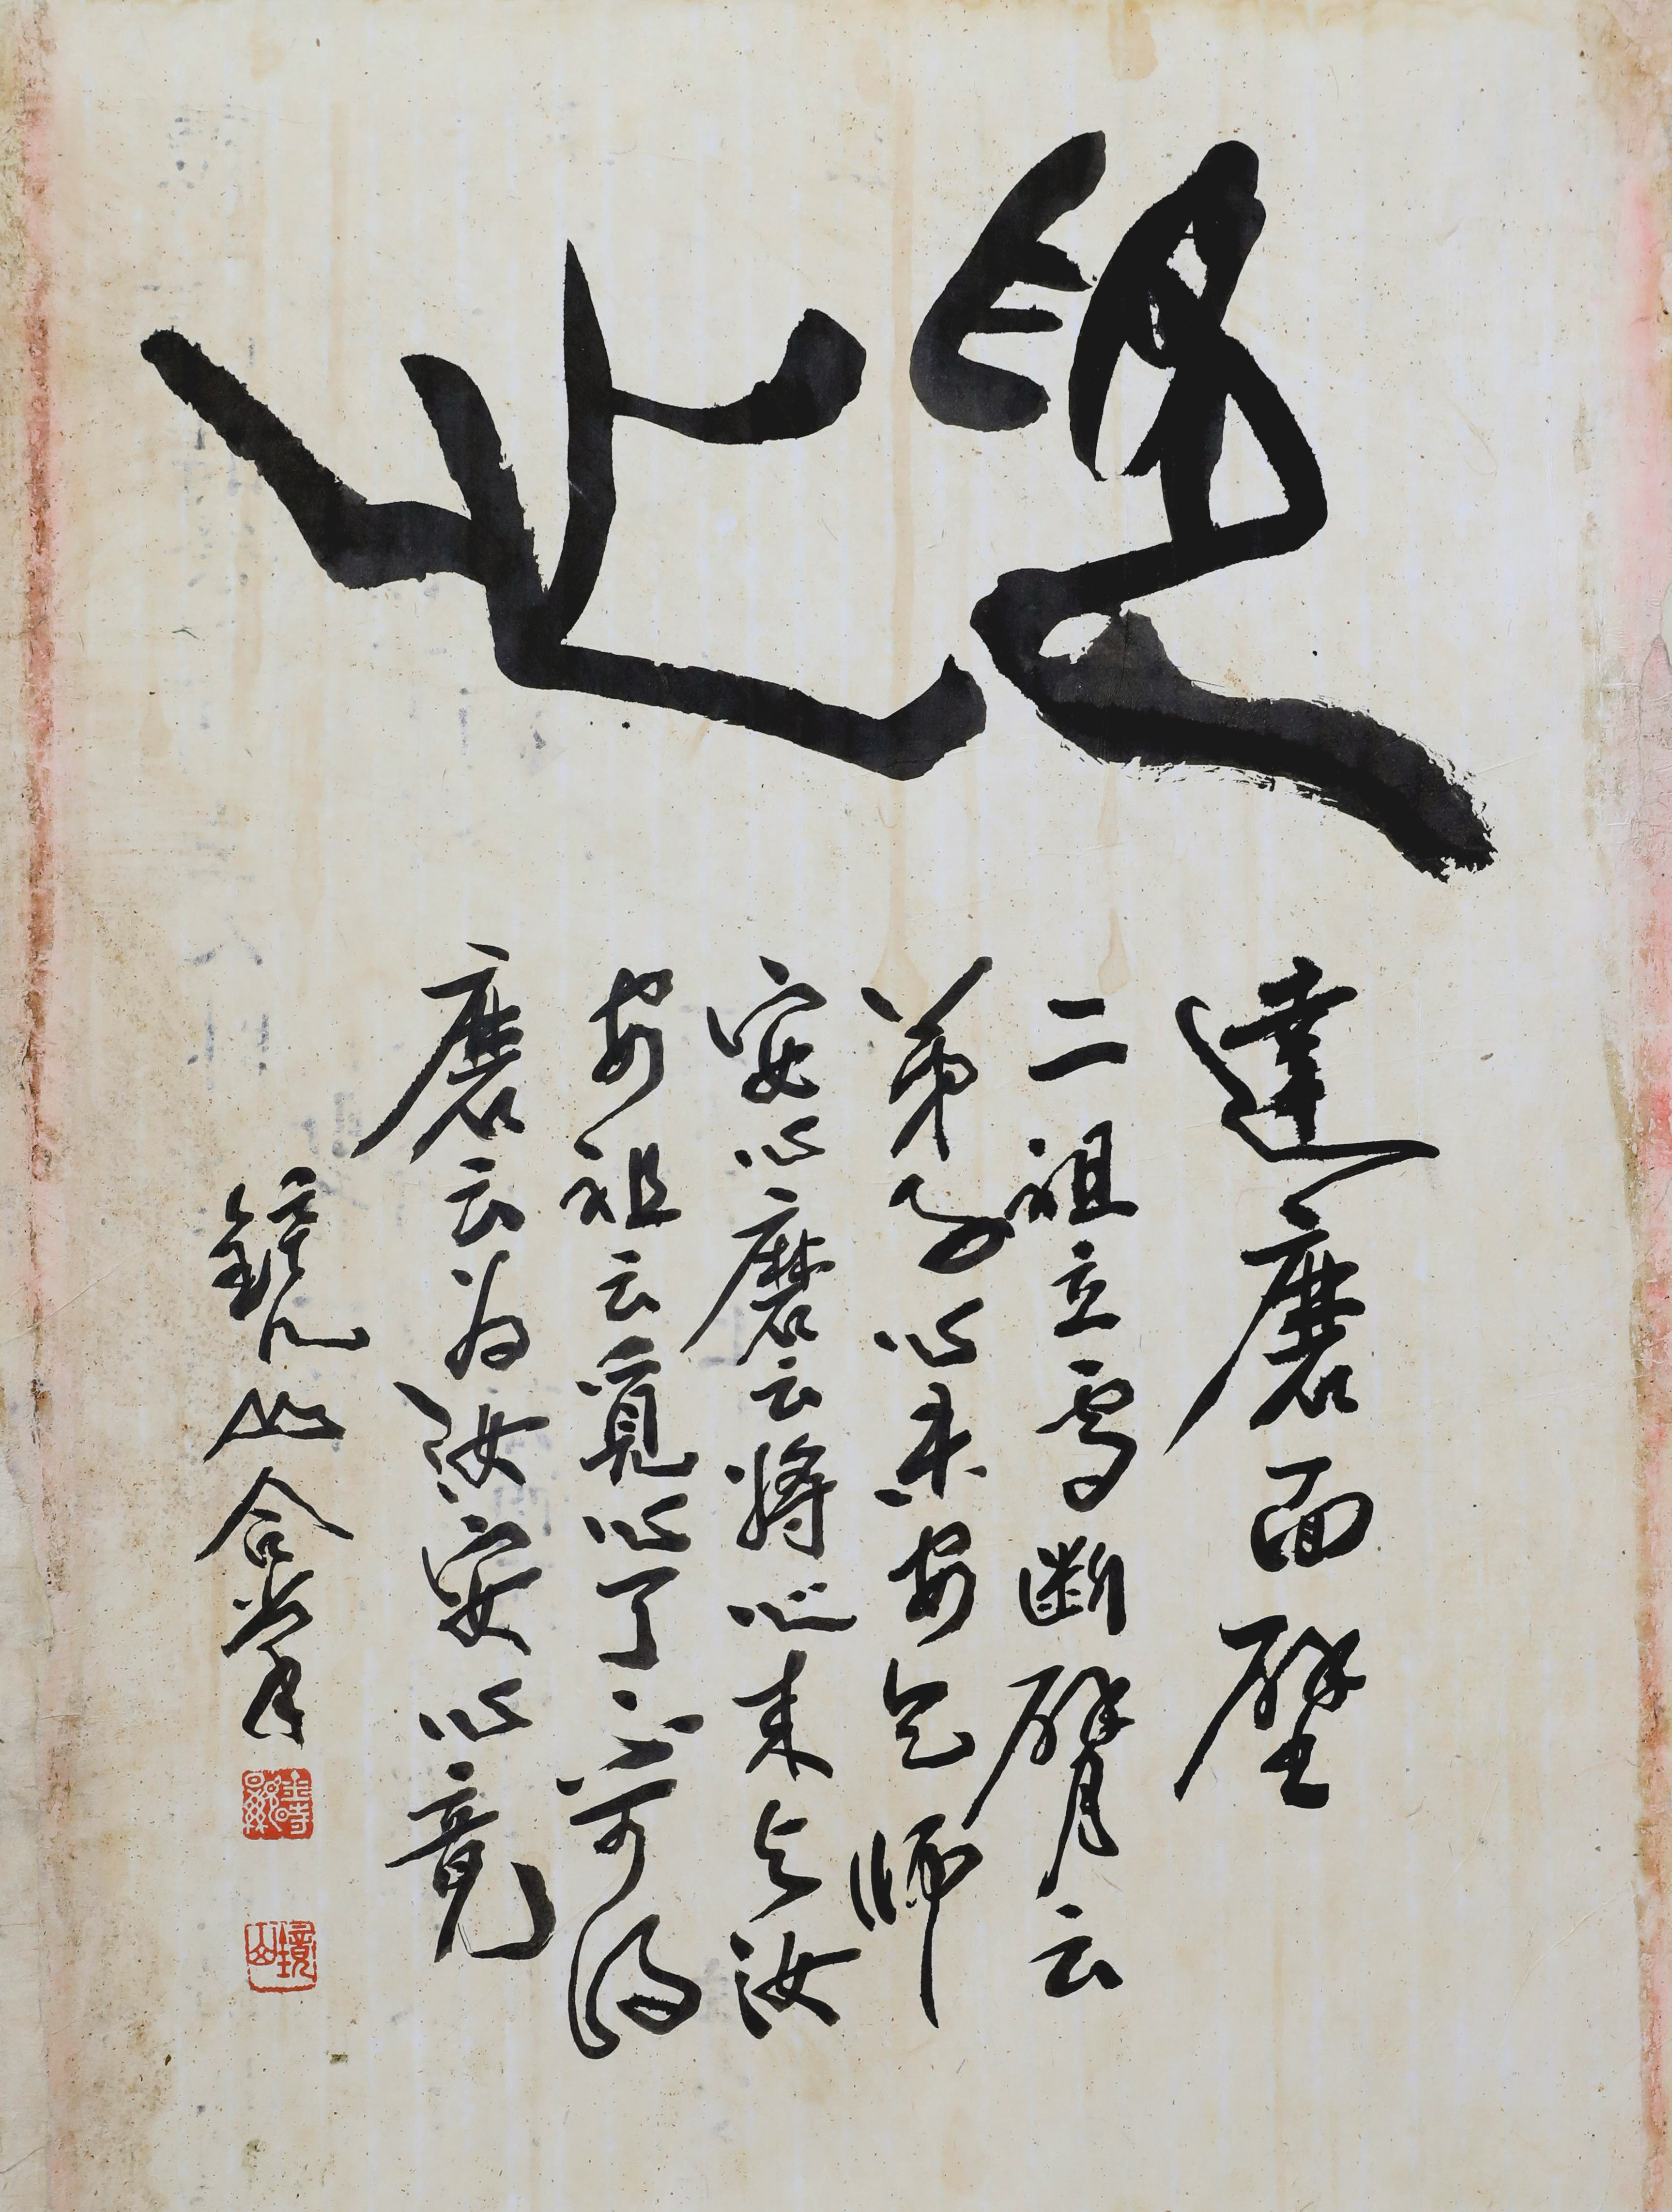 達磨面壁
二祖立雪断臂云
弟子心未安乞師
安心磨云將心来与汝
安祖云覓心了不可得
磨云為汝安心竟
鏡山合掌
鏡山